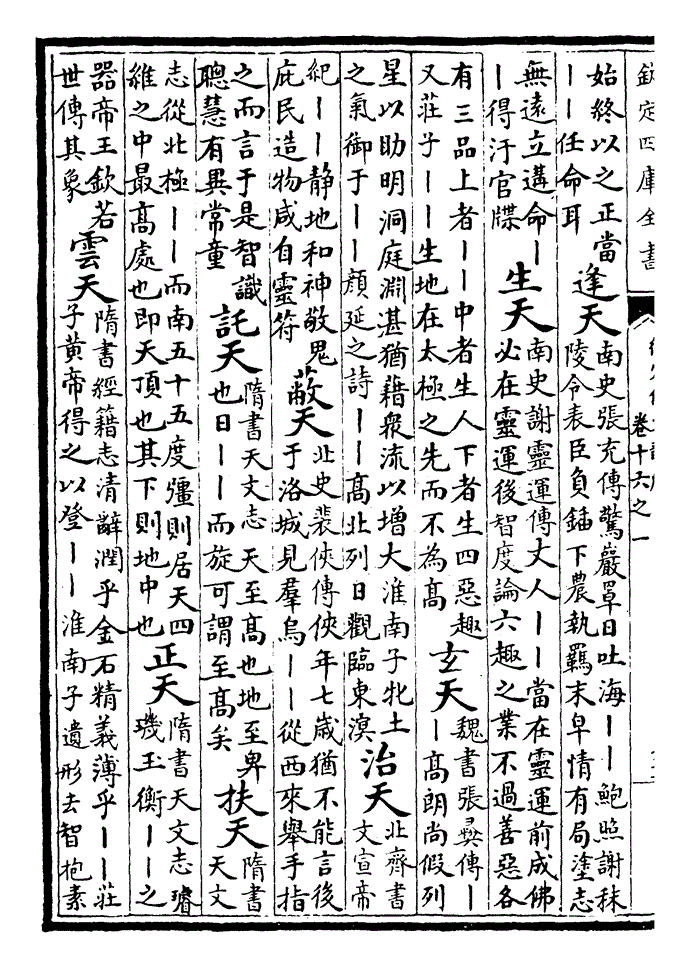 欽定四庫全書
卷十六之一
始終以之正當
——任命耳
逢天
南史張充傳驚巖罩日吐海——鮑照謝秣
陵令表臣負鍤下農執羈末皁情有局塗志
無遠立遘命—
—得汙官牒
生天
南史謝靈運傳丈人——當在靈運前成佛
必在靈運後智度論六趣之業不過善惡各
有三品上者——中者生人下者生四惡趣
又莊子——生地在太極之先而不為髙
玄天
魏書張彞傳—
—髙朗尚假列
星以助明洞庭淵湛猶藉衆流以增大淮南子牝土
之氣御于——顔延之詩——髙北列日觀臨東溟
治天
北齊書
文宣帝
紀——静地和神敬鬼
庇民造物咸自靈符
蔽天
北史裴俠傳俠年七歳猶不能言後
于洛城見羣烏——從西來舉手指
之而言于是智識
聰慧有異常童
託天
隋書天文志 天至髙也地至卑
也日——而旋可謂至髙矣
扶天
隋書
天文
志從北極——而南五十五度彊則居天四
維之中最髙處也即天頂也其下則地中也
正天
隋書天文志璿
璣玉衡——之
器帝王欽若
世傳其象
雲天
隋書經籍志清辭潤乎金石精義薄乎——莊
子黄帝得之以登——淮南子遺形去智抱素